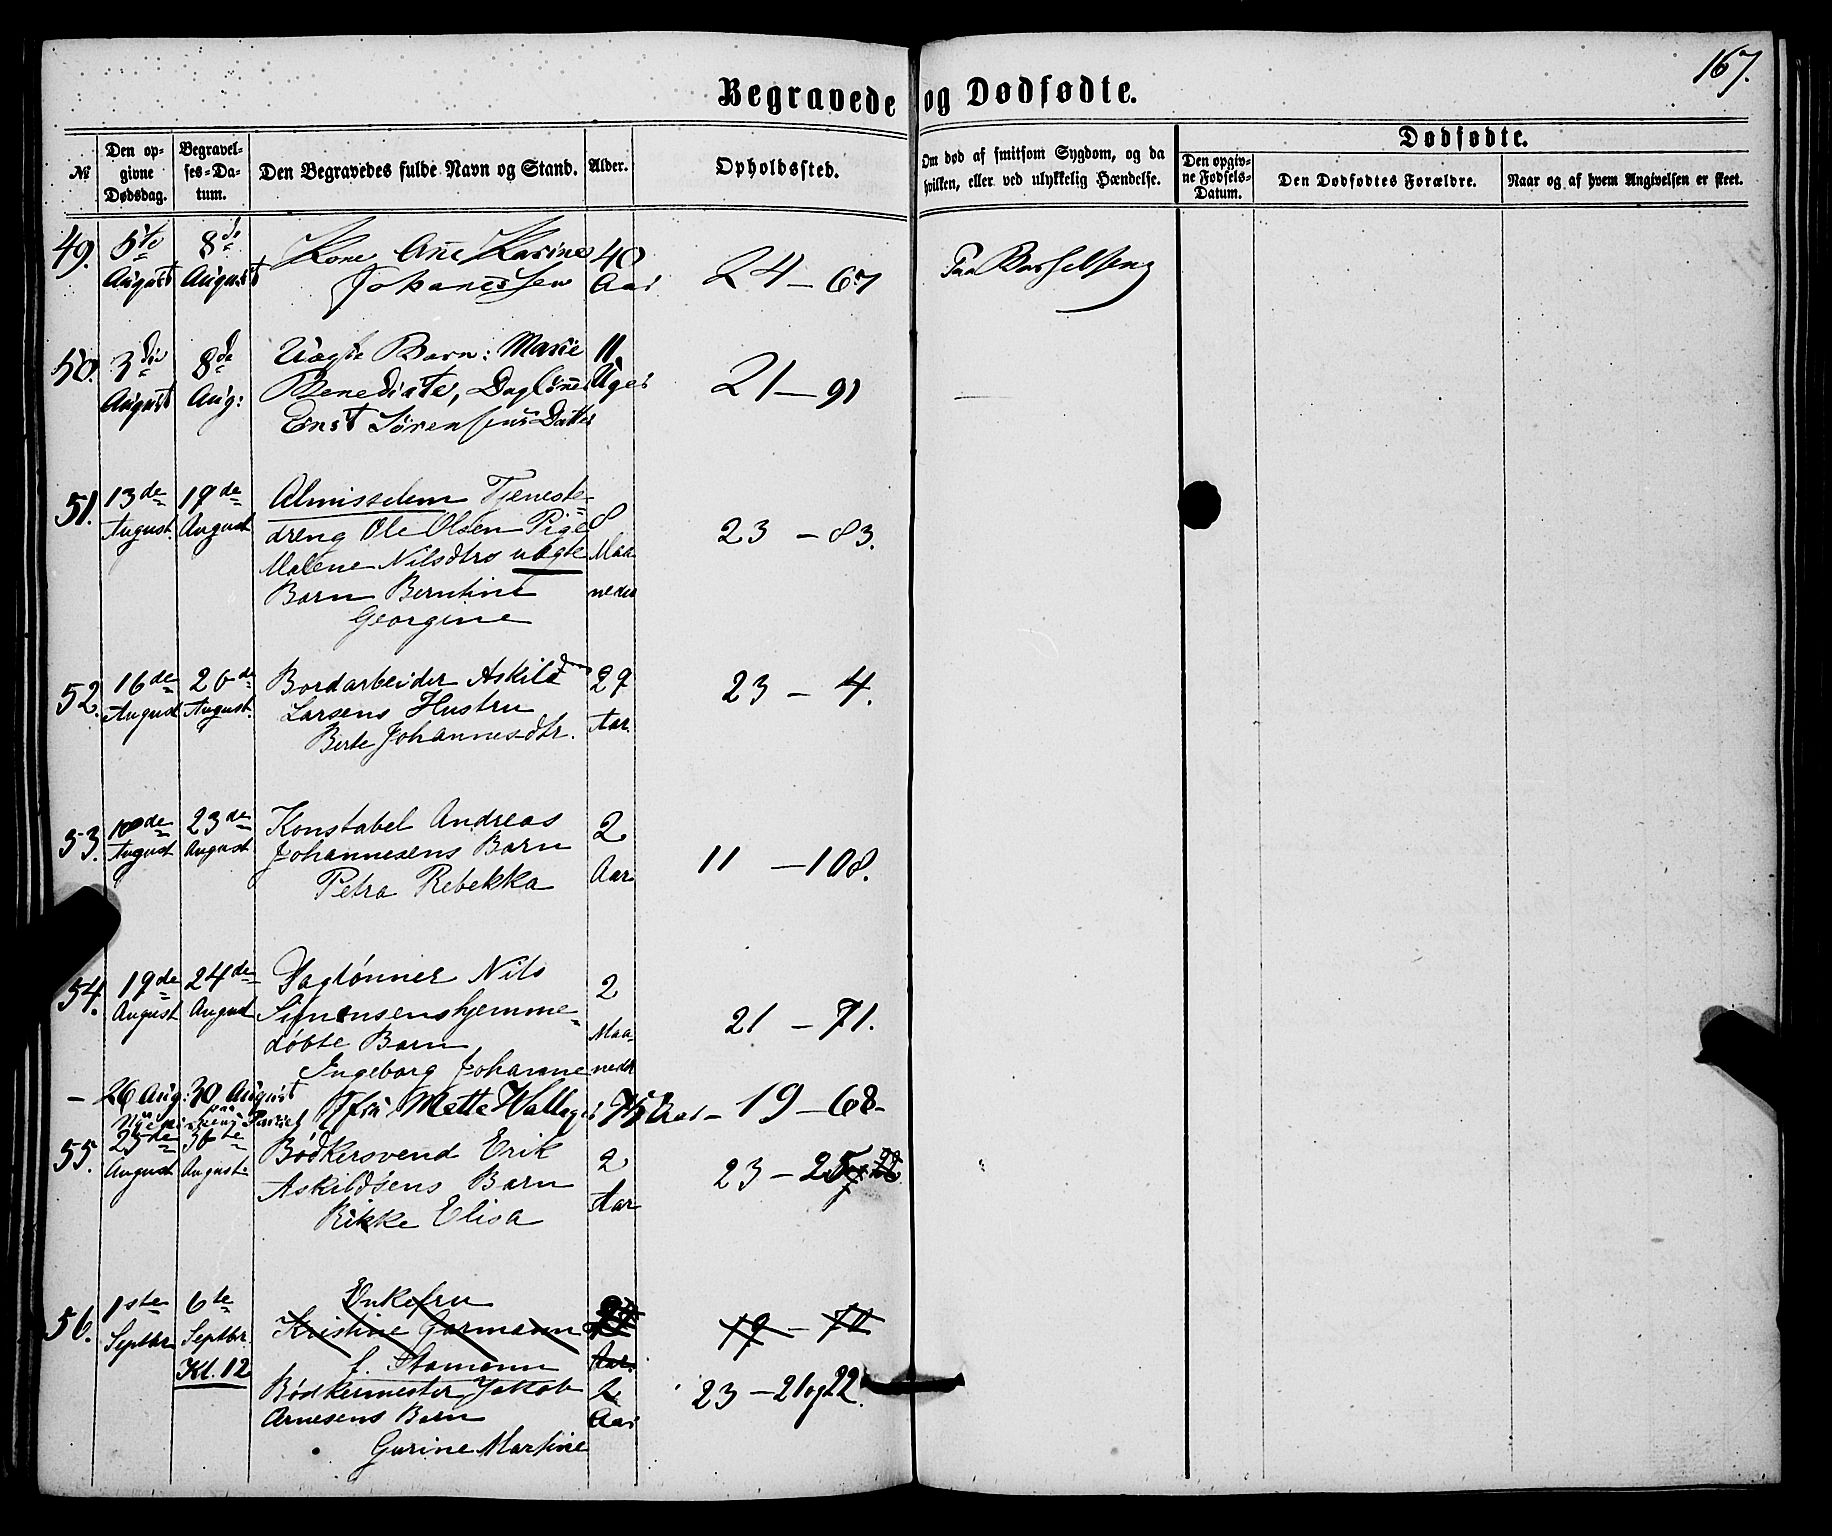 167.
Begravede og Dødfødte.
№
Den op-
givne
Dødsdag.
Begravel-
ses-Da-
tum.
Den Begravedes fulde Navn og Stand.
Alder.
Opholdssted.
Om død af smitsom Sygdom, og da
hvilken, eller ved ulykkelig Hændelse.
Dødfødte.
Den opgiv-
ne Fødsels-
Datum.
Den Dødfødtes Forældre.
Naar og af hvem Angivelsen er skeet.
49. 5te 8de Kone Ane Karine 40 24 – 67 Paa Barselseng
August August Johannessen Aar
50. 3die 8de Uægte Barn: Marie 11 21 – 91
August Aug: Benedicte, Daglønner Uger
Ernst Sørensens Datter
51. 13de 19de Almisselem Tjeneste- 8 23 – 83.
August. August dreng Ole Olsen Pige
Malene Nilsdtrs uægte Maa-
Barn Berntine neder
Georgine
52. 16de 20de Bordarbeider Askild 29 23 – 4.
August August. Larsens Hustru Aar.
Berte Johannesdtr.
53. 23de Konstabel Andreas 2 11 – 108.
August August Johannesens Barn Aar
Petra Rebekka
54. 19de 24de Daglønner Nils 2 21 – 71.
August August Simonsens hjemme- Maa-
døbte Barn neder
Ingeborg Johanne
– 26 Aug: 30 August Jfru Mette 75 Aar – 19 – 68 –
55. 25de 30te Bødkersvend Erik 2 23 – 25
August August Askildsens Barn Aar
Rikke Elisa
56. 1ste 6te Enkefru
Septbr Septbr. Kristine Garmann Aar. 19 – 70
Kl. 12 f. Stamann
Bødkermester Jakob 2 23 – 21 og 22.
Arnesens Barn Aar
Gurine Martine